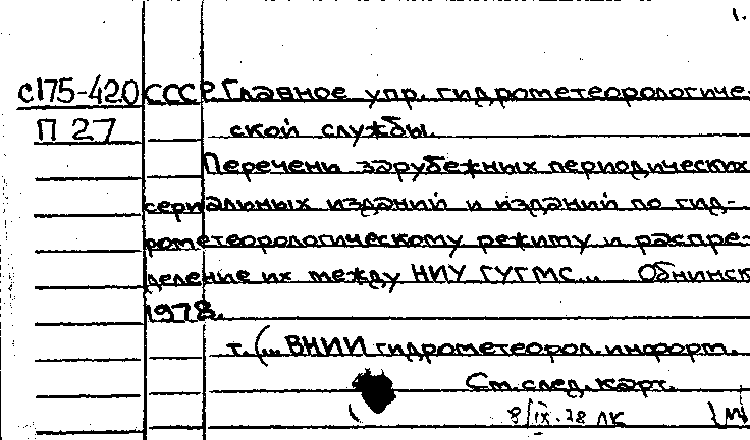 1.
с175-420 СССР. Главное упр. гидрометеорологиче-
П 27 ской службы.
Перечени зарубежных периодических
сериальных изданий и изданий по гид-
рометеорологическому режиму и распре-
деление их между НИУ ГУГМС... Обнинск
1978.
т. (... ВНИИ гидрометеорол. информ.
См. след. карт.
8/IX-78 ЛК